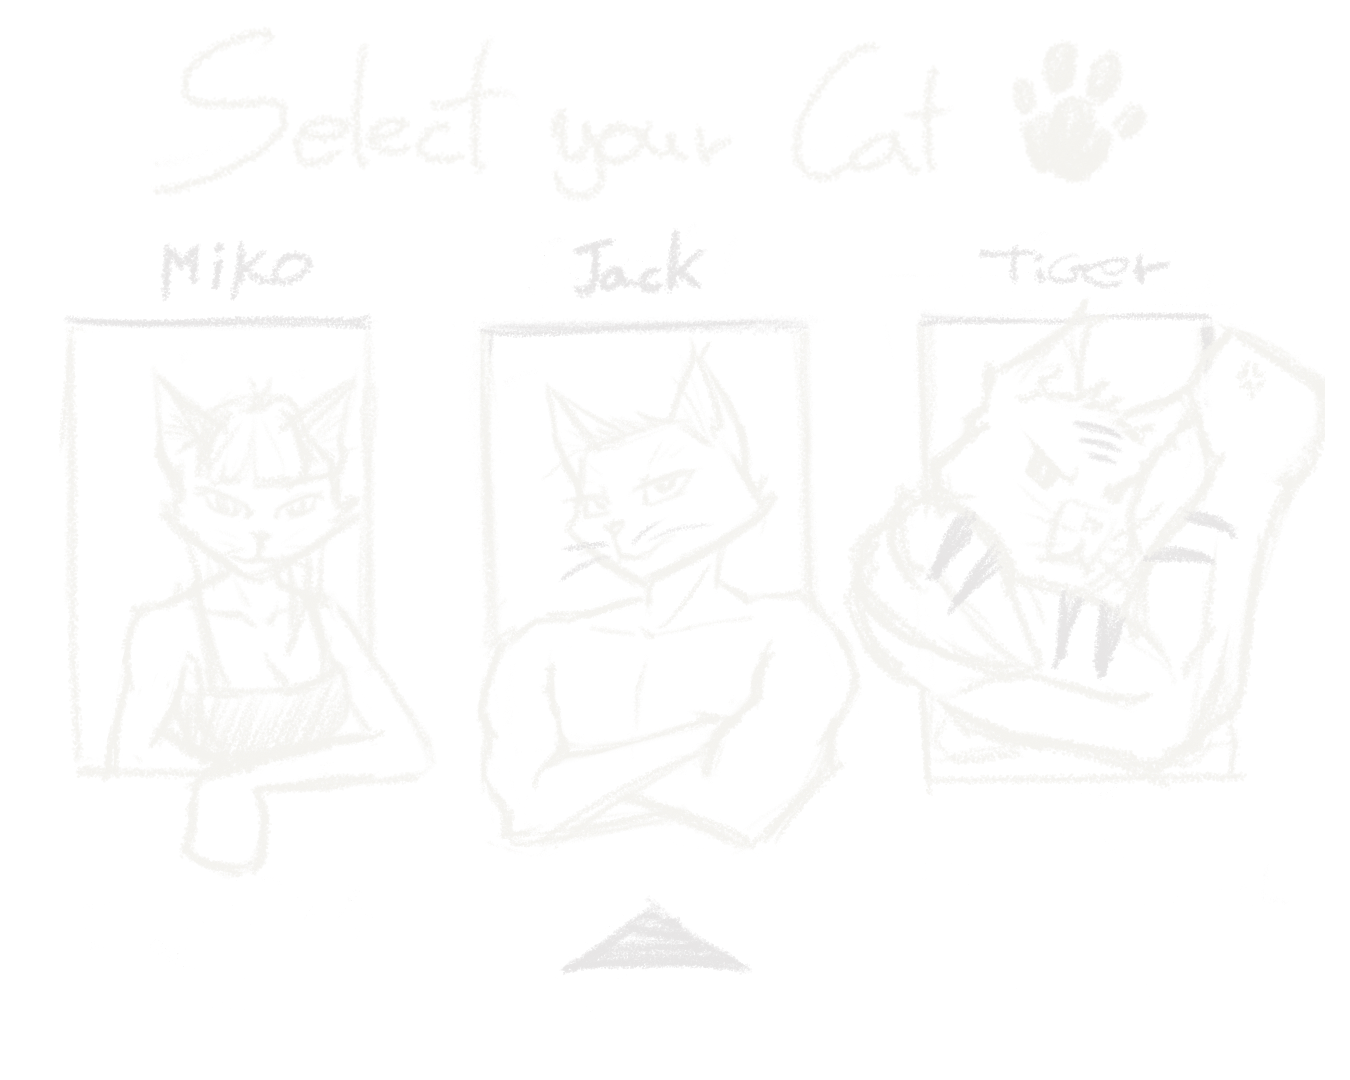 Select your Cat
Miko
Jack
TiGer